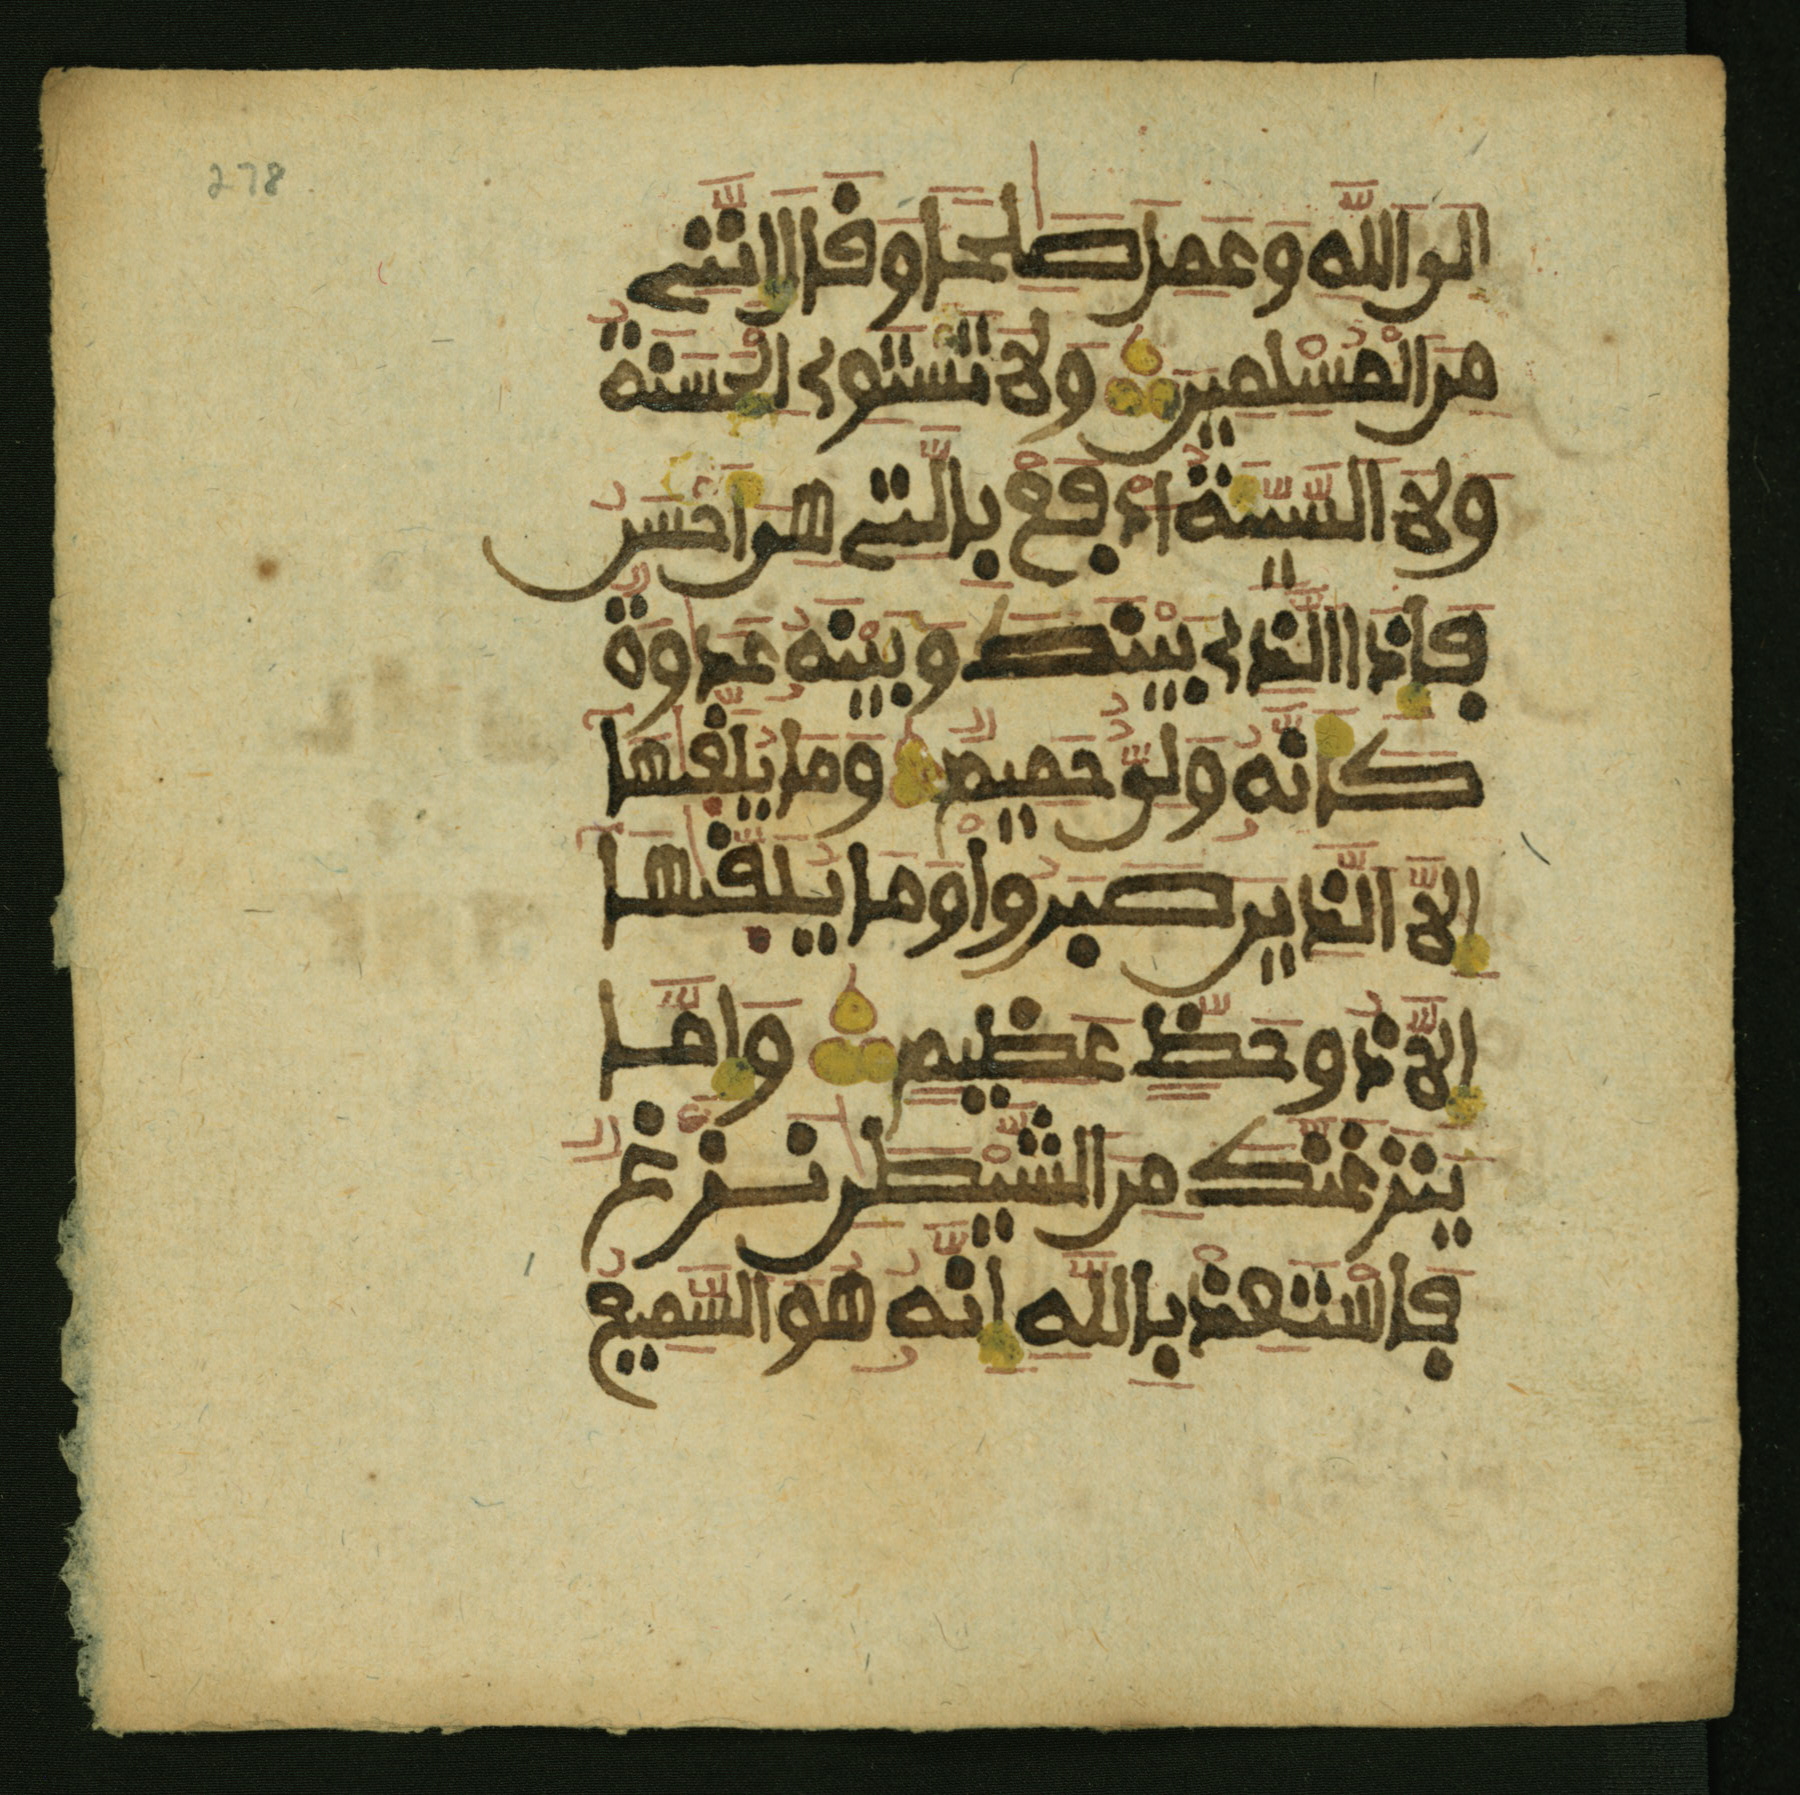 278
الى الله وعمل صلحا وقال اننى
من المسلمين ولا تستوى الحسنة
ولا السيية ادفع بالتى هى احسن
فاذا الذى بينك وبينه عدوة
كانه ولى حميم وما يلقيها
الا الذين صبروا وما يلقيها
الا ذو حظ عظيم واما
ينزغنك من الشيطن نزغ
فاستعذ بالله انه هو السميع